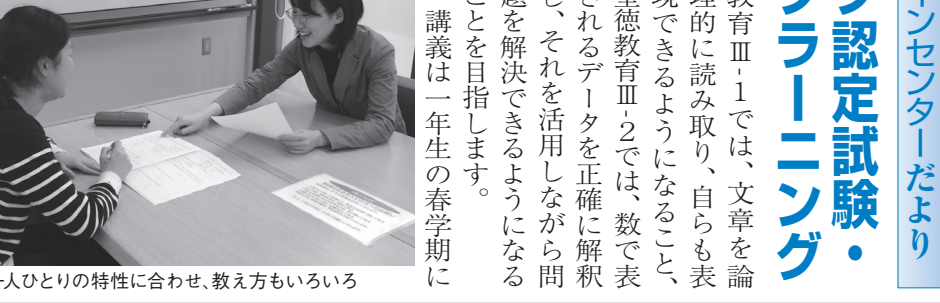 ーンセンターだより
認定試験・
ラーニング
教育Ⅲ-1では、文章を論
理的に読み取り、自らも表
現できるようになること、
聖徳教育Ⅲ-2では、数で表
されるデータを正確に解釈
し、それを活用しながら問
題を解決できるようになる
ことを目指します。
講義は一年生の春学期に
一人ひとりの特性に合わせ、教え方もいろいろ